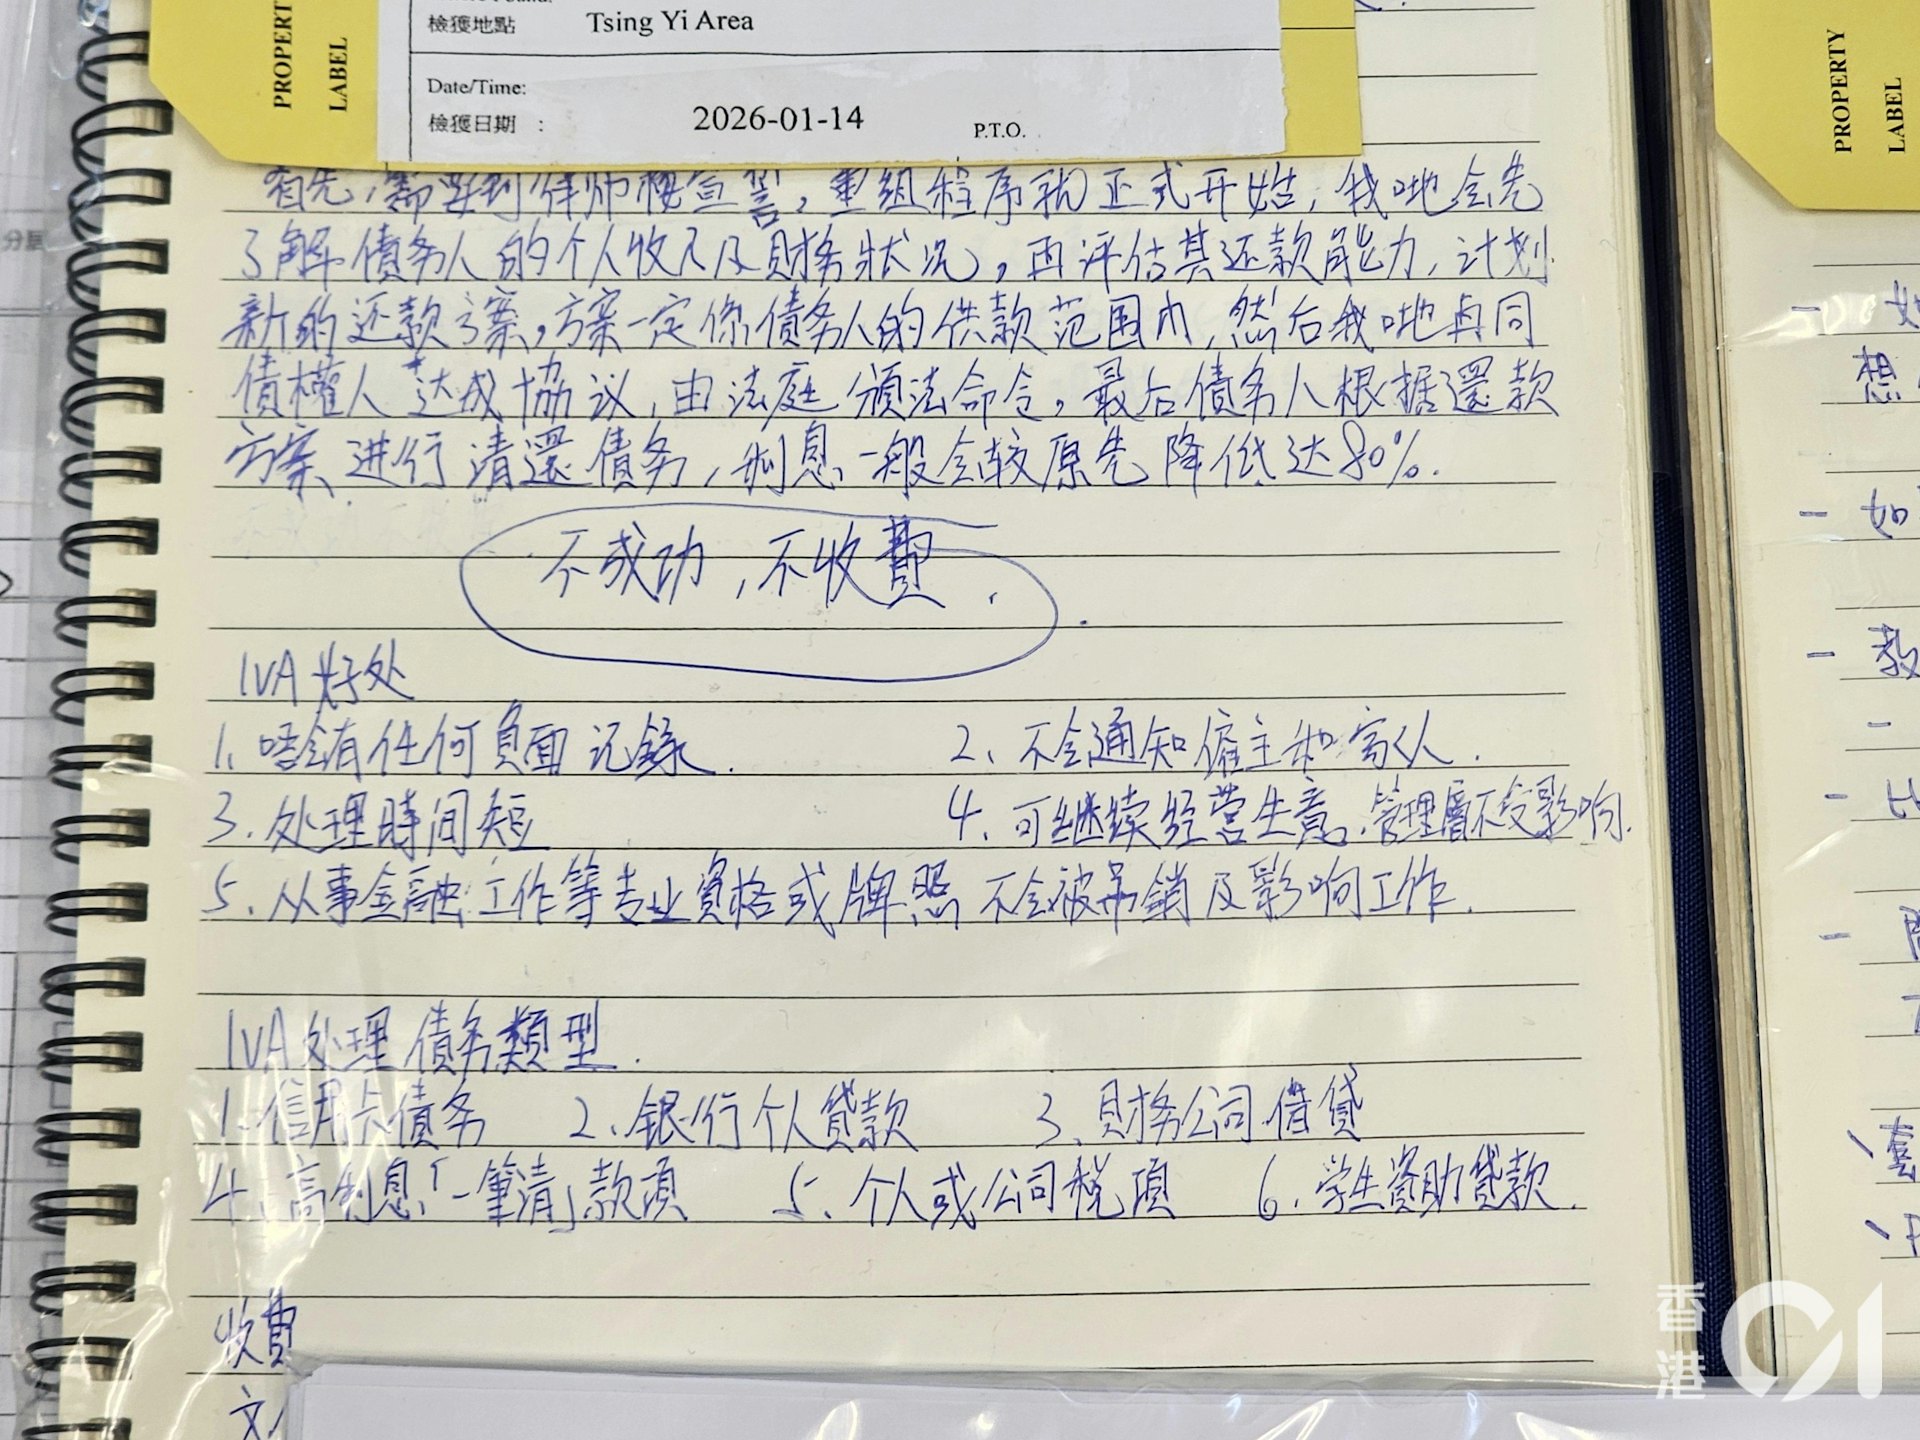 PROPERTY
LABEL
檢獲地點 Tsing Yi Area
Date/Time:
檢獲日期 : 2026-01-14
P.T.O.
首先,需要到律师楼宣誓,重组程序就正式开始,我哋会先
了解債务人的个人收入及財務狀况,再评估其还款能力,计划
新的还款方案,方案一定係債务人的供款范围内,然后我哋再同
債權人达成協议,由法庭頒法命令,最后債务人根据還款
方案进行清還債务,利息一般会较原先降低达80%.
不成功,不收費.
IVA好处
1、唔會有任何負面记錄.
2、不会通知僱主和家人.
3.处理時间短
4、可继续经营生意,管理層不受影响.
5.从事金融工作等专业資格或牌照不会被吊銷及影响工作.
IVA处理債务類型.
1.信用卡債务 2.银行个人貸款 3.財务公司借貸
4.高利息「一筆清」款項 5.个人或公司税項 6.学生资助贷款.
收費
PROPERTY
LABEL
想
- 如
- 教
香港01